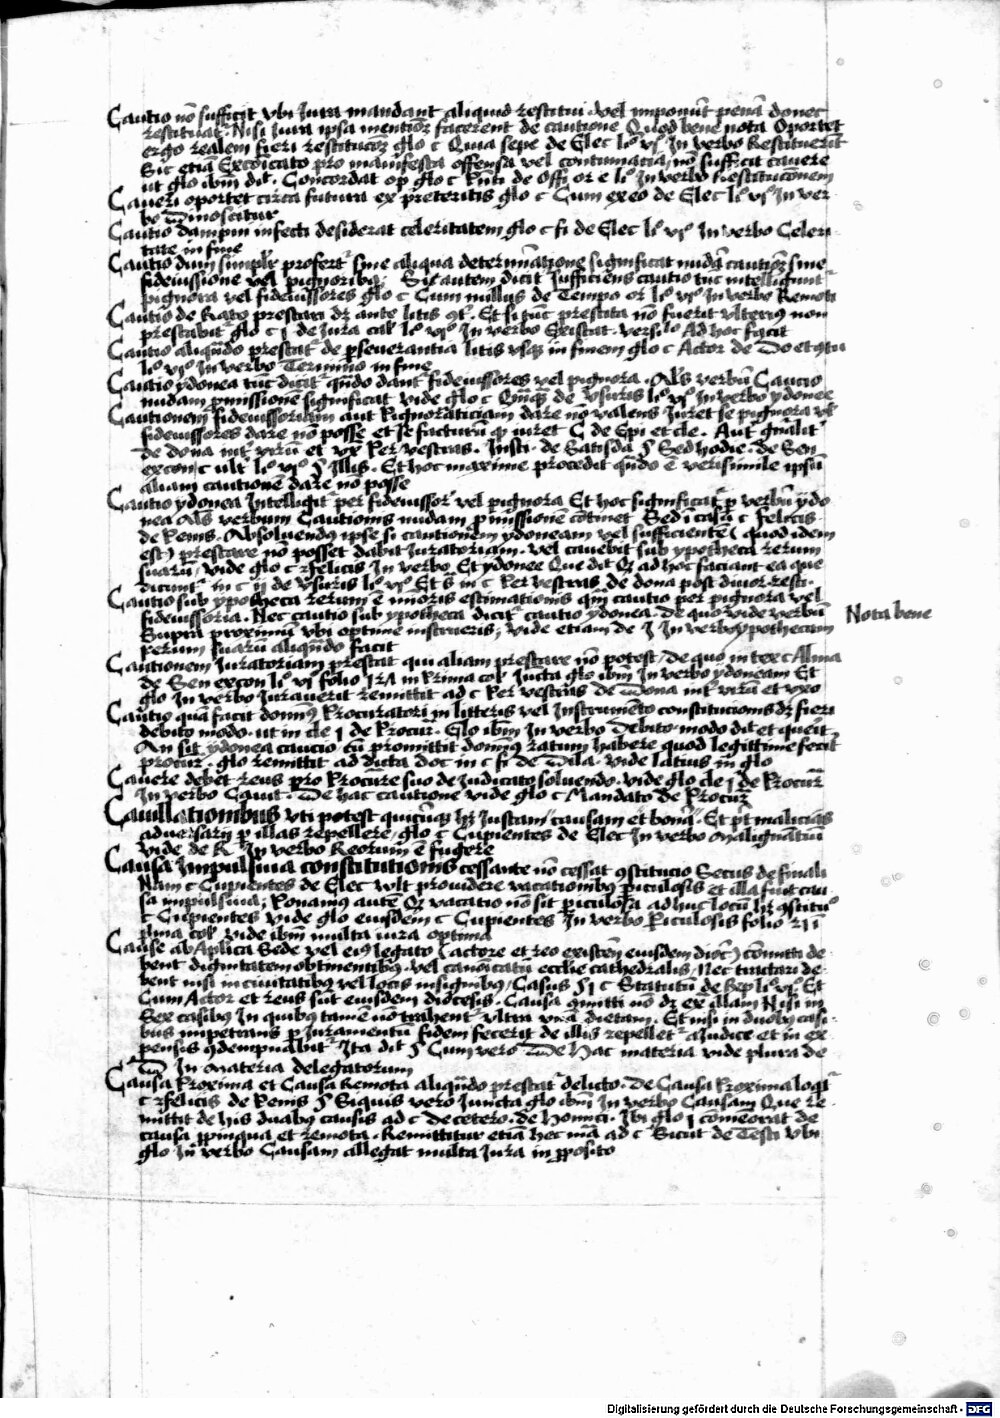 Cautio nō sufficit vbi Jura mandant aliquid restitui vel imponūt penā donec
restituat. Nisi Jura ipsa mentionē facerent de cautione Quod bene nota Oportet
ergo realem fieri restitucōē glo c Quia sepe de Elec li° vj° Jn verbo Restituerit
Sic etiā Excōicato pro manifesta offensa vel contumatia, nō sufficit cavere
ut glo ibm dit. Concordat op glo c de Offi or e li° Jn verbo Restitucōnem
Caveri oportet circa futura ex preteritis glo c Cum ex eo de Elec li° vj° Jn ver
bo Dinoscitur
Cautio dampni infecti desiderat celeritatem glo c fi de Elec li° vj° Jn verbo Celeri
tate in fine
Cautio dum simplr profert sine aliqua determīatione significat nudā cautiōē sine
fideiussione vel pignoribus, Sic autem dicit sufficiens cautio tūc intelligunt
pignora vel fideiussores glo c Cum nullus de Tempo or li° vj° Jn verbo Remoti
Cautio de Rato prestari dz ante litis Et si tūc prestita nō fuerit vlterius non
prestabit glo c j de Jura cal li° vj° Jn verbo Existat. Ad hoc facit
Cautio aliqñdo prestat de pseverantia litis vsqz in finem glo c Actor de Do et
li° vj° Jn verbo Termino in fine
Cautio ydonea tūc dicit qñdo dant fideiussores vel pignora. Als verbū Cautio
nudam pmissionē significat vide glo c de Vsuris li° vj° Jn verbo ydonee
Cautionem fideiussoriam aut Pignoraticiam dare nō valens Juret se pignora vl
fideiussores dare nō posse et se facturū qd iuret C de Epi et cle. Aut
de dona int virū et vx Per vestras. Insti. de Satisda § Sed hodie. de Sen
excon c ult li° vj° § Illis. Et hoc maxime procedit qñdo ē verisimile ipsū
aliam cautionē dare nō posse
Cautio ydonea Intelligit per fideiussor vel pignora Et hoc significat p verbū ydo
nea Als verbum Cautionis nudam pmissionē cōtinet Sed c felicis
de Penis. Absoluendus ipse si cautionem ydoneam vel sufficientē (quod idem
est) prestare nō posset dabit Juratoriam. vel cavebit sub ypotheca rerum
suarū, vide glo c felicis Jn verbo Et ydonee Que dit Q ad hoc faciant ea que
dicunt in c ij de Vsuris li° vj° Et s in c Per vestras de dona post divor. resti.
Cautio sub ypotheca rerum ē minoris estimationis qm cautio per pignora vel
fideiussoria. Nec cautio sub ypotheca dicit cautio ydonea. De quo vide verbū
Supra proximū vbi optime instrueris, vide etiam de J Jn verbo ypothecam
Rerum suarū aliqñdo facit
Nota bene
Cautionem Juratoriam prestat qui aliam prestare nō potest, de quo in tex c Alma
de Sen excon li° vj° folio in Prima col Juncta glo ibm Jn verbo ydoneam Et
glo Jn verbo Juraverit remittit ad c Per vestras de Dona int virū et vxo
Cautio quā facit domīus Procuratori in litteris vel Instrumēto constitucionis dz fieri
debito modo. ut in cle j de Procur. Glo ibm Jn verbo Debito modo dit et querit
An sit ydonea caucio cū promittit domīus ratum habere quod legittime fecit
procur. glo remittit ad dicta doc in c fi de Dila. vide latius in glo
Cavere debet reus pro Procurē suo de Judicato solvendo. vide glo cle j de Procur
Jn verbo Cavit. De hac cautione vide glo c Mandato de Procur
Cavillationibus vti potest quicūqz hz Justam causam et bonā. Et malicias
adversarij p illas repellere, glo c Cupientes de Elec Jn verbo Malignātiū
vide de R Jn verbo Reorum ē fugere
Causa Impulsiva constitutionis cessante nō cessat ostitucio Secus de finali
Nam c Cupientes de Elec vult providere vacationibus periculosis et illa fuit cau
sa impulsiva, Ponamus aute Q vacatio nō sit periculosa adhuc locū hz ostitu°
c Cupientes vide glo eiusdem c Cupientes Jn verbo Periculosis folio
pima col. vide ibm multa iura optima
Cause ab Aplica Sede vel eius legato (actore et reo existen eiusdem dioc) cōmitti de
bent dignitatem obtinentibus vel canoicatū ecclie cathedralis, Nec tractari de
bent nisi in civitatibus vel locis insignibus, Casus c Statutū de Rep li° vj° Et
Cum Actor et reus sūt eiusdem diocesis. Causa omitti nō dz ex illam Nisi in
Sex casibus In quibus tamē nō trahent vltra vnā dietam. Et nisi in duobus casi-
bus impetrans p Juramentū fidem fecerit de illis repellet a Judice et in ex
pensis odempnabit Ita dit § Cum vero De Hac materia vide plura de
D Jn Materia delegatorum
Causa Proxima et Causa Remota aliqñdo prestat delicto. De Causa Proxima loqt
c felicis de Penis § Siquis vero Juncta glo ibm Jn verbo Causam Que re
mittit de his duabus causis ad c De cetero. de Homici. Ibi glo j comēorat de
causa ppinqua et remota. Remittitur etiā hec mā ad c Sicut de Testi vbi
glo Jn verbo Causam allegat multa Jura in pposito
Digitalisierung gefördert durch die Deutsche Forschungsgemeinschaft - DFG